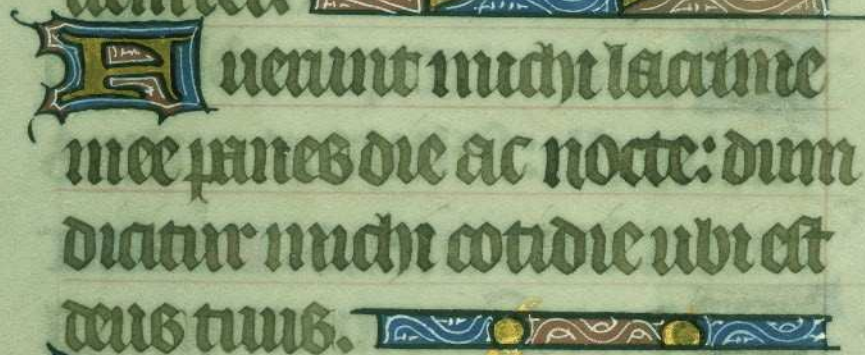 Fuerunt michi lacrime
mee panes die ac nocte: dum
dicitur michi cotidie ubi est
deus tuus.